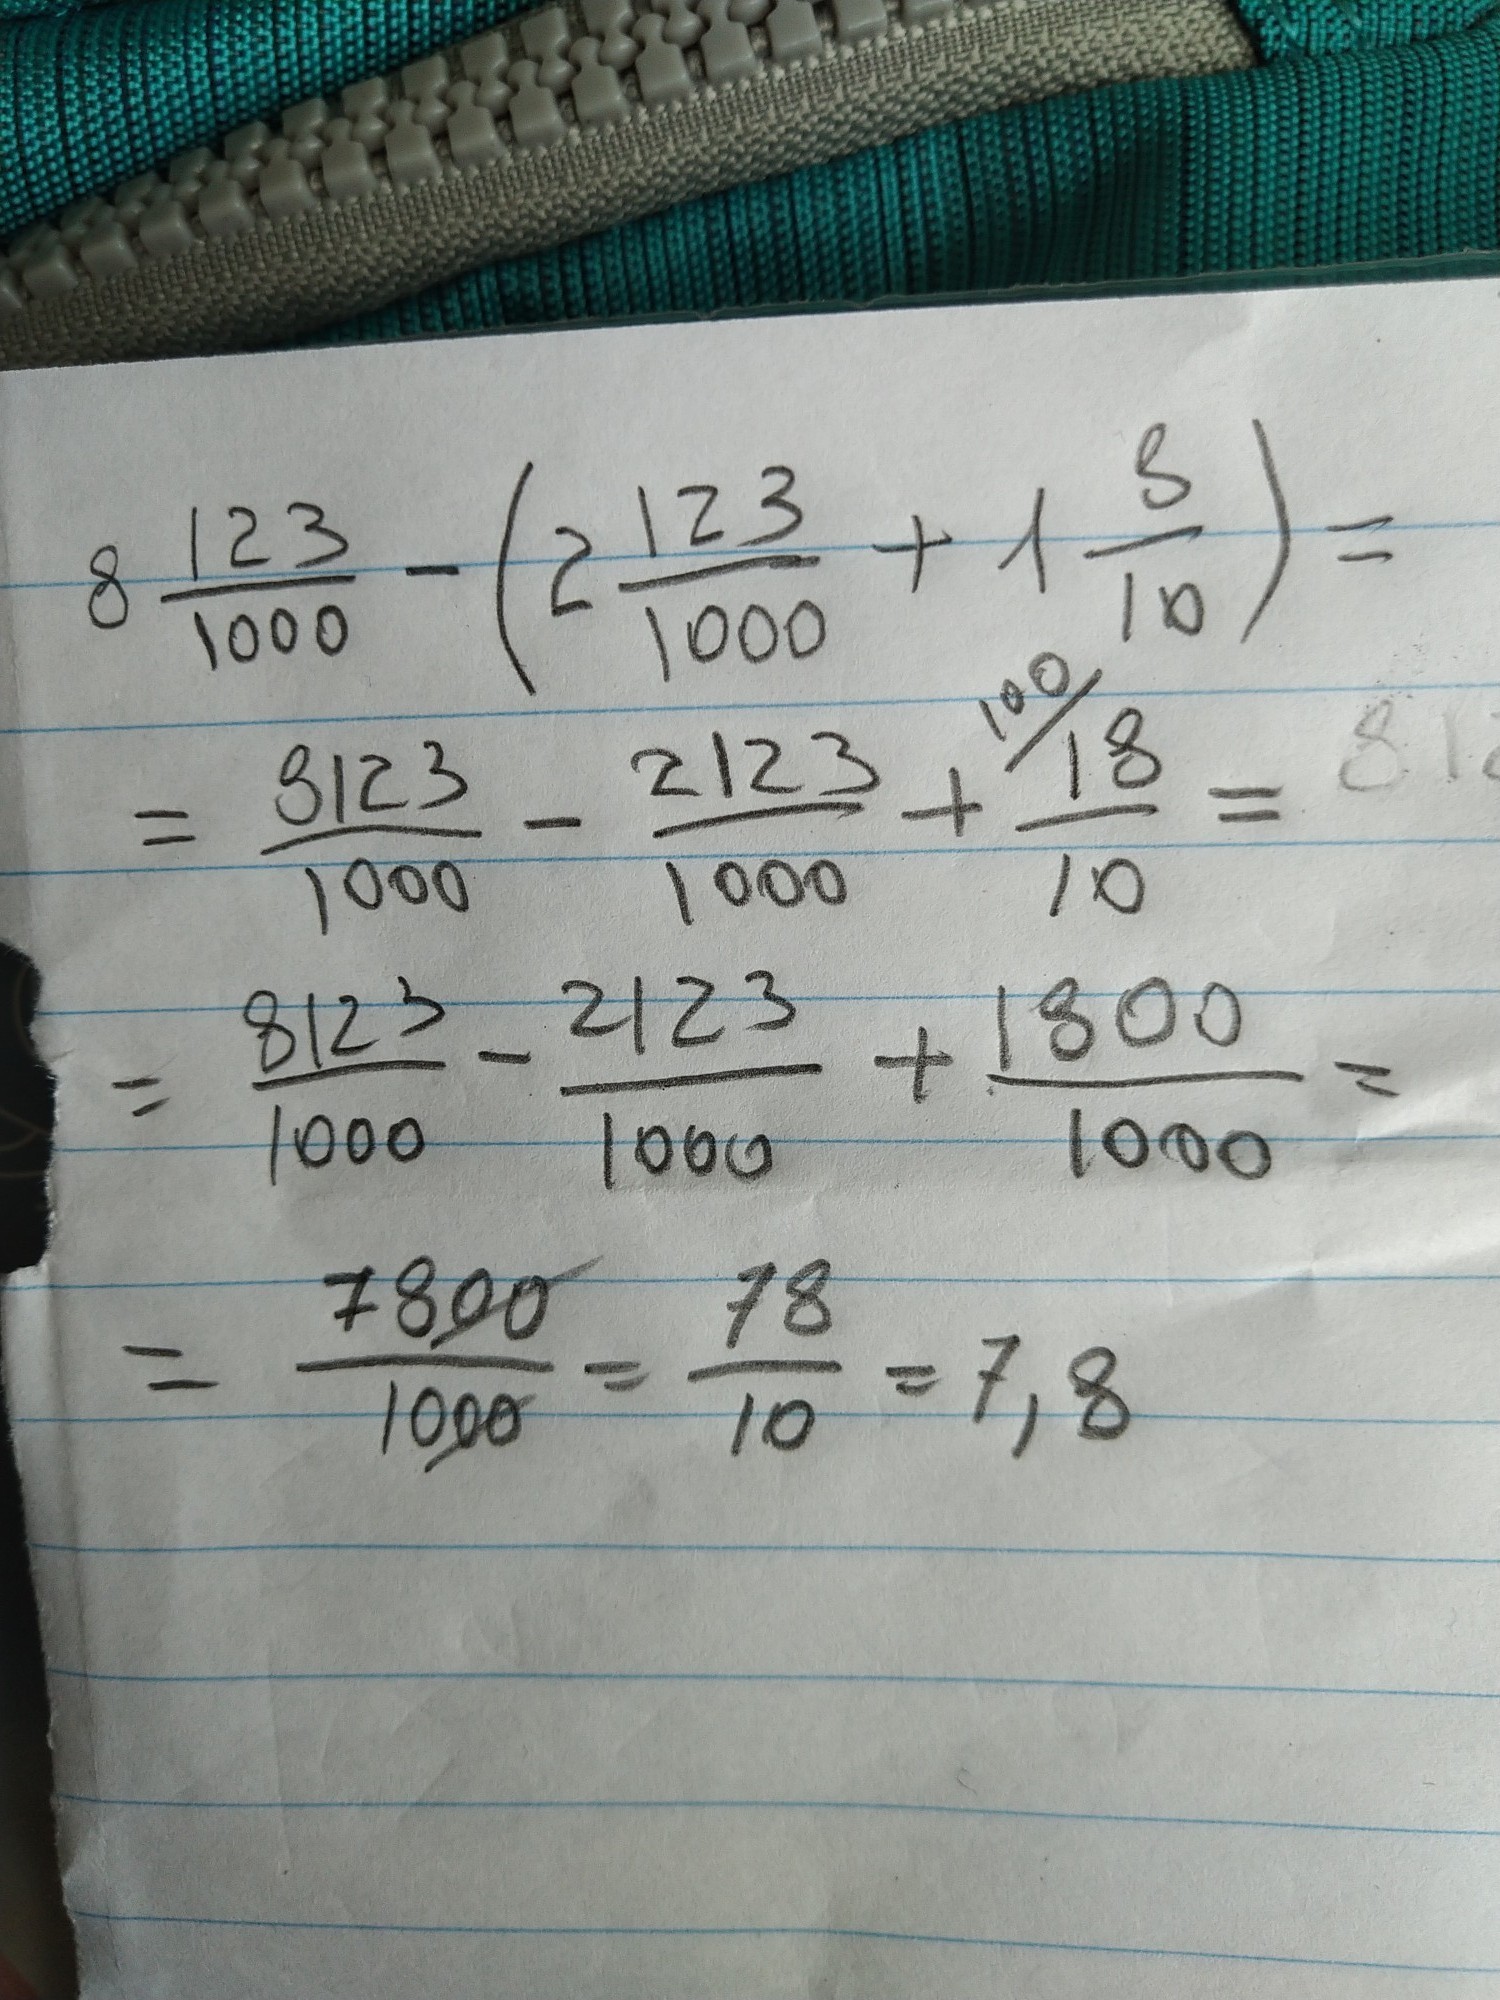 8 123/1000 - (2 123/1000 + 1 8/10) =
= 8123/1000 - 2123/1000 + 100/ 18/10 = 812
= 8123/1000 - 2123/1000 + 1800/1000 =
= 7800/1000 = 78/10 = 7,8